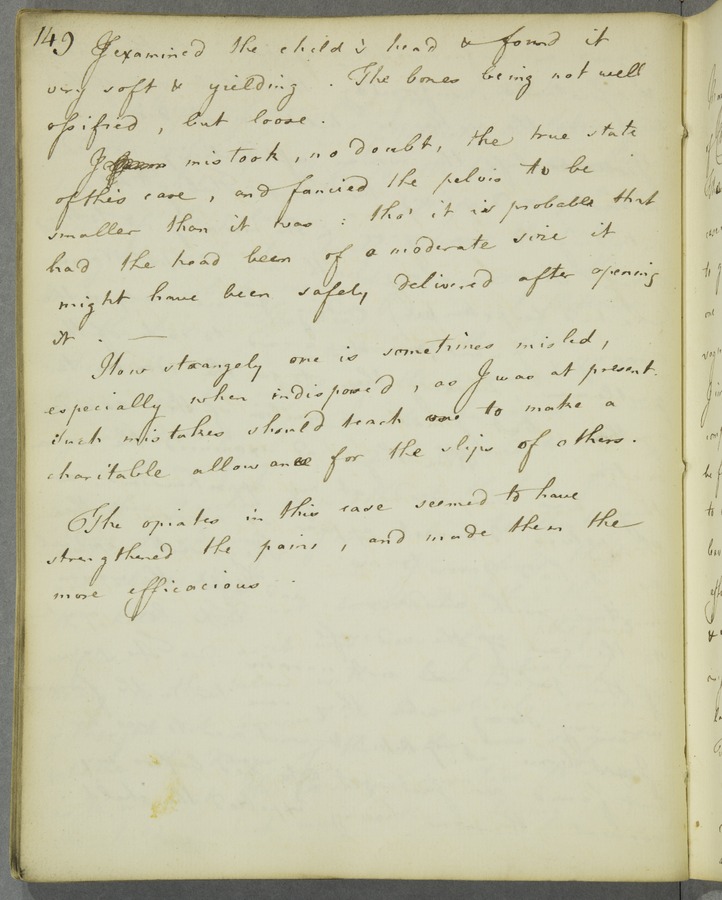 149 I examined the child's head & found it
very soft & yielding . The bones being not well
ossified , but loose .
I mistook , no doubt , the true state
of this case , and fancied the pelvis to be
smaller than it was : tho' it is probable that
had the head been of a moderate size it
might have been safely delivered after opening
it . —
How strangely one is sometimes misled ,
especially when indisposed , as I was at present .
Such mistakes should teach one to make a
charitable allowance for the slips of others .
The opiates in this case seemed to have
strengthened the pains , and made them the
more efficacious .